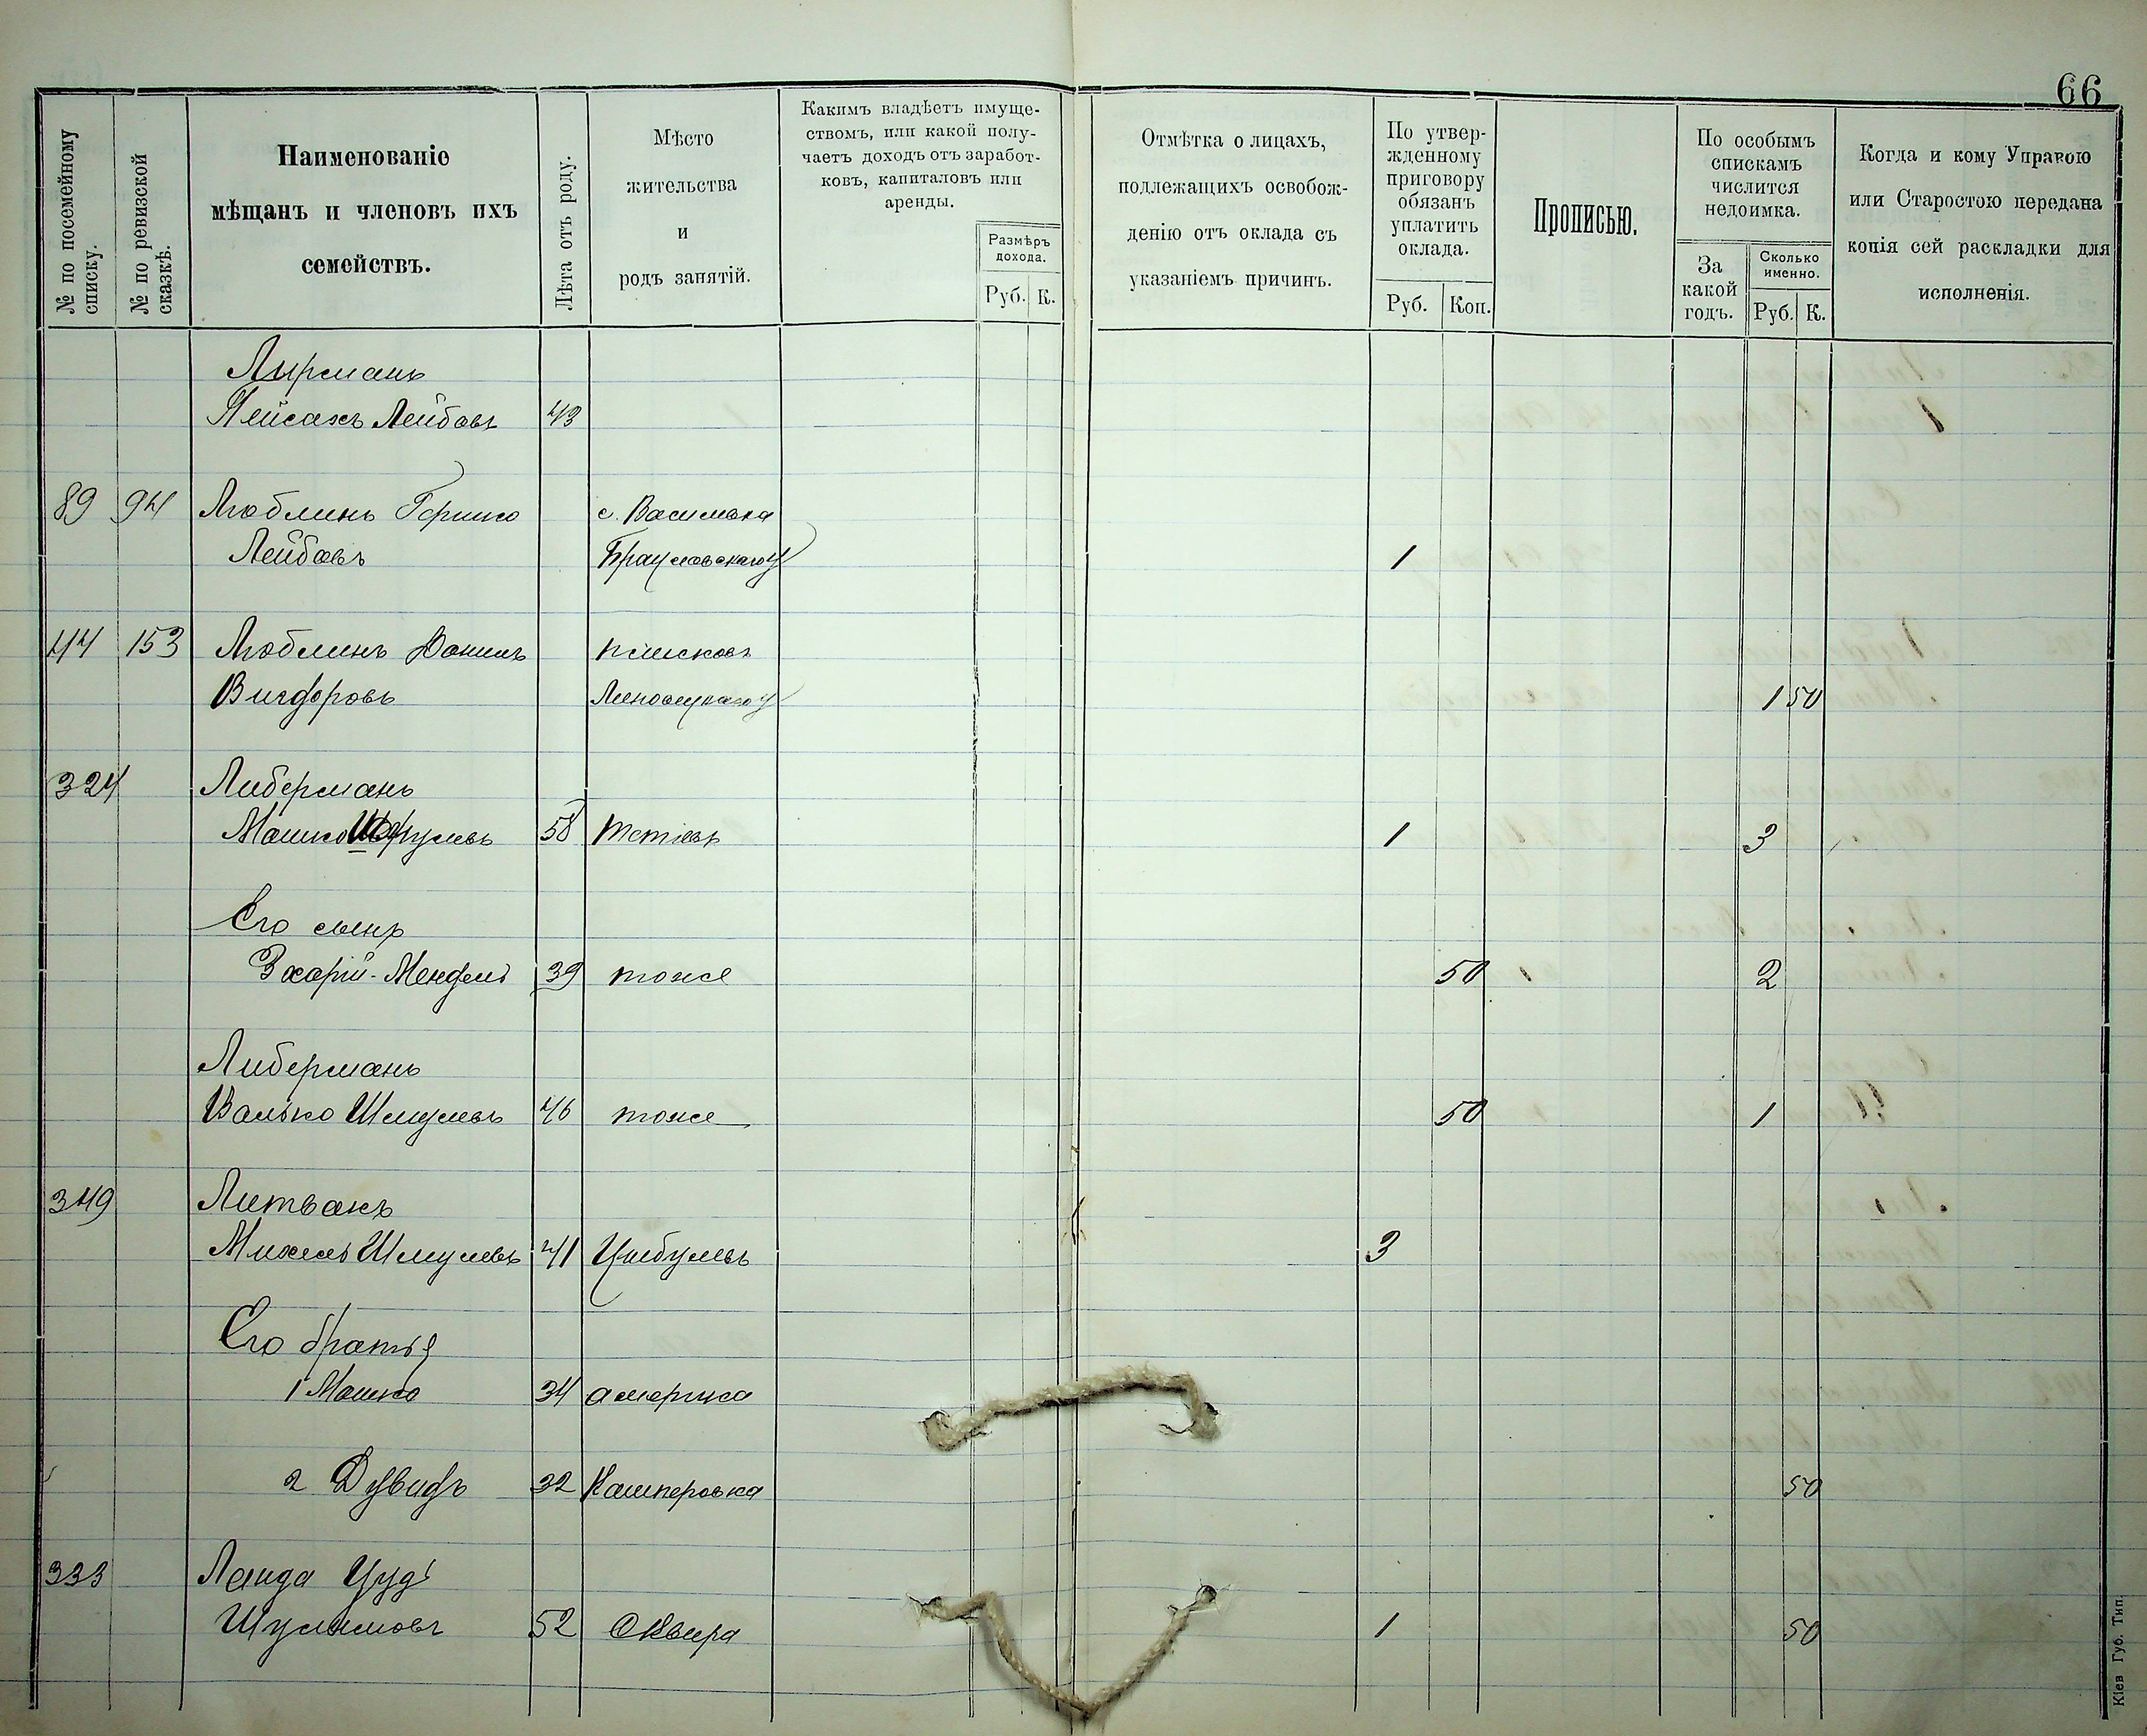 66
№ по посемейному списку.
№ по ревизской сказкѣ.
Наименованіе
мѣщанъ и членовъ ихъ
семействъ.
Лѣта отъ роду.
Мѣсто
жительства
и
родъ занятій.
Какимъ владѣетъ имуще-
ствомъ, или какой полу-
чаетъ доходъ отъ заработ-
ковъ, капиталовъ или
аренды.
Размѣръ
дохода.
Руб. К.
Отмѣтка о лицахъ,
подлежащихъ освобож-
денію отъ оклада съ
указаніемъ причинъ.
По утвер-
жденному
приговору
обязанъ
уплатить
оклада.
Руб. Коп.
Прописью.
По особымъ
спискамъ
числится
недоимка.
За
какой
годъ.
Сколько
именно.
Руб. К.
Когда и кому Управою
или Старостою передана
копія сей раскладки для
исполненія.
Лирманъ
Пейсахъ Лейбовъ 43
89 94 Люблинъ Гершко с. Василевка
Лейбовъ Брацлавскаго у 1
44 153 Люблинъ
Вигдоровъ Липовецкаго у 1 50
324 Либерманъ
Мошко 58 Тетіевъ 1 3
Его сынъ
Зхарій-Мендель 39 тоже 50 2
Либерманъ
Валько Шмулевъ 46 тоже 50 1
349 Литвакъ
Михель Шмулевъ 41 Цыбулевъ 3
Его братья
1 Мошко 34 Америка
2 Дувидъ 32 Кашперовка 50
333 Ланда
52 Сквира 1 50
Кіев Губ. Тип.